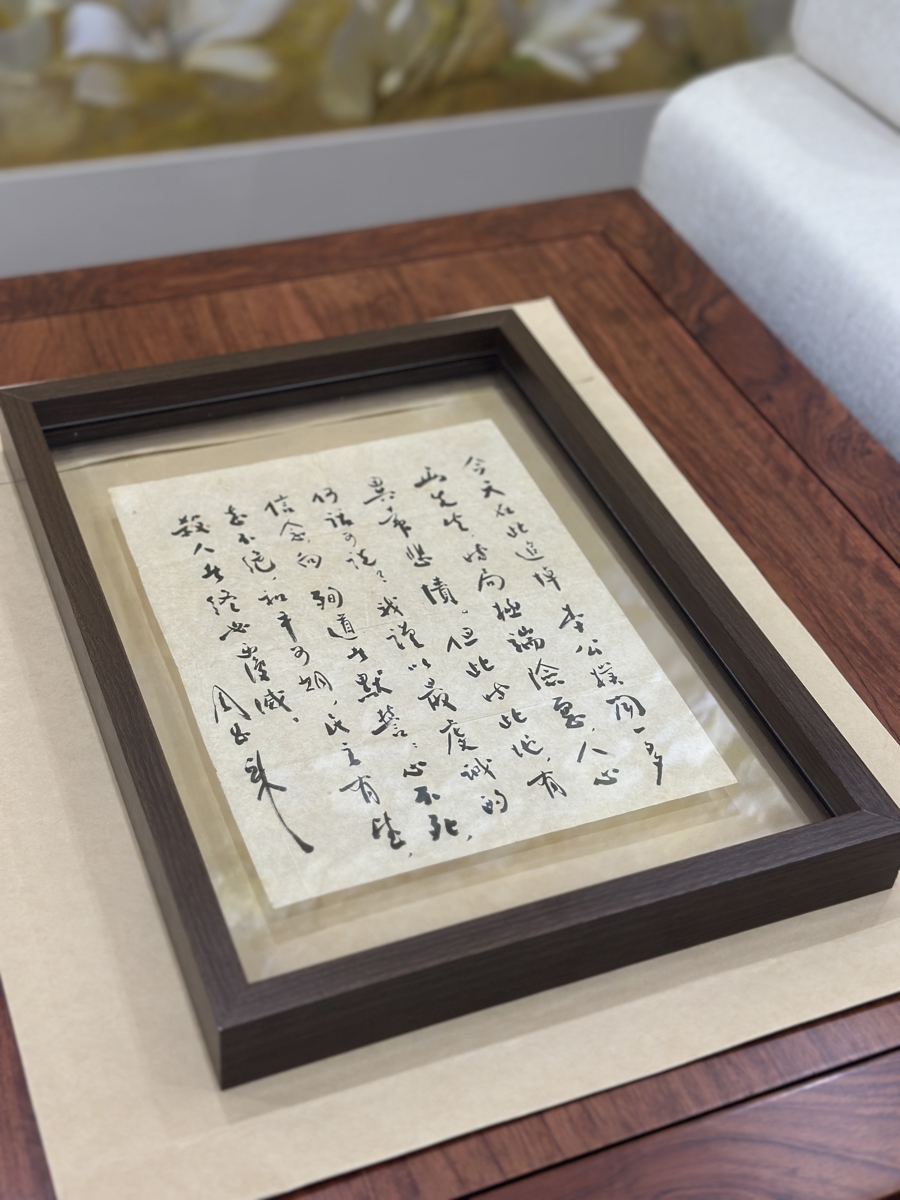 今天在此追悼李公樸聞一多
两先生,时局極端險惡,人心
異常悲憤。但此时此地,有
何話可说?我謹以最虔诚的
信念,向殉道者默誓:心不死,
志不绝,和平可期,民主有望,
殺人者终必覆滅!
周恩来